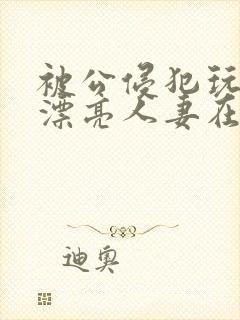 被公侵犯玩
漂亮人妻在
迪奥